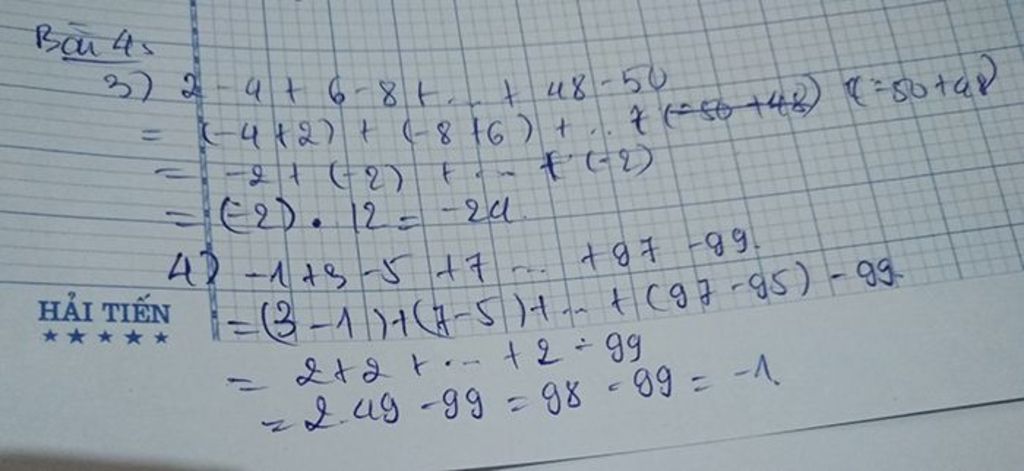 Bài 4:
3) 2 - 4 + 6 - 8 + ... + 48 - 50
= (-4+2) + (-8+6) + ... + (-50+48) (-50+48)
= -2 + (-2) + ... + (-2)
= (-2) . 12 = -24.
4) -1+3-5 +7 ... +97 -99.
= (3-1)+(7-5)+...+(97-95) - 99.
= 2+2 + ... +2 - 99
= 2.49 -99 = 98 - 99 = -1.
HẢI TIẾN
★★★★★